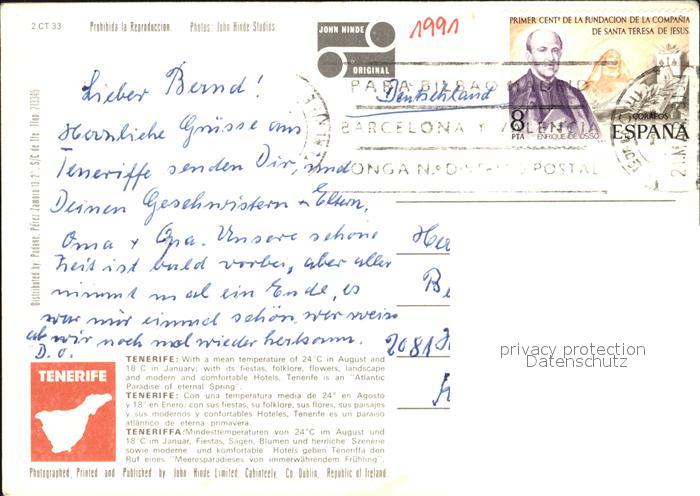 2 CT 33 Prohibida la Reproducción. Photos: John Hinde Studios.
JOHN HINDE
ORIGINAL
1991
PRIMER CENTº DE LA FUNDACION DE LA COMPAÑIA
DE SANTA TERESA DE JESUS
8
PTA
ENRIQUE DE OSSO
CORREOS
ESPAÑA
PARA BILBAO MADRID
BARCELONA Y VALENCIA
PONGA Nº DISTRITO POSTAL
Deutschland
Lieber Bernd!
Herzliche Grüsse aus
Teneriffe senden Dir, und
Deinen Geschwistern + Eltern,
Oma + Opa. Unsere schöne
Zeit ist bald vorbei, aber alles
nimmt mal ein Ende, es
war mir einmal schön, wer weiss
ob wir noch mal wieder herkomm.
D. O.
2081
Distributed by Padane, Pérez Zamora 13-2º, S/C de Tfe.
TENERIFE
TENERIFE: With a mean temperature of 24°C in August and
18°C in January; with its fiestas, folklore, flowers, landscape
and modern and comfortable Hotels, Tenerife is an "Atlantic
Paradise of eternal Spring".
TENERIFE: Con una temperatura media de 24° en Agosto
y 18° en Enero; con sus fiestas, su folklore, sus flores, sus paisajes
y sus modernos y confortables Hoteles, Tenerife es un paraiso
atlántico de eterna primavera.
TENERIFFA: Mindesttemperaturen von 24°C im August und
18°C im Januar, Fiestas, Sagen, Blumen und herrliche Szenerie
sowie moderne und komfortable Hotels geben Teneriffa den
Ruf eines "Meeresparadieses von immerwährendem Frühling".
Photographed, Printed and Published by John Hinde Limited, Cabinteely, Co. Dublin, Republic of Ireland.
privacy protection
Datenschutz